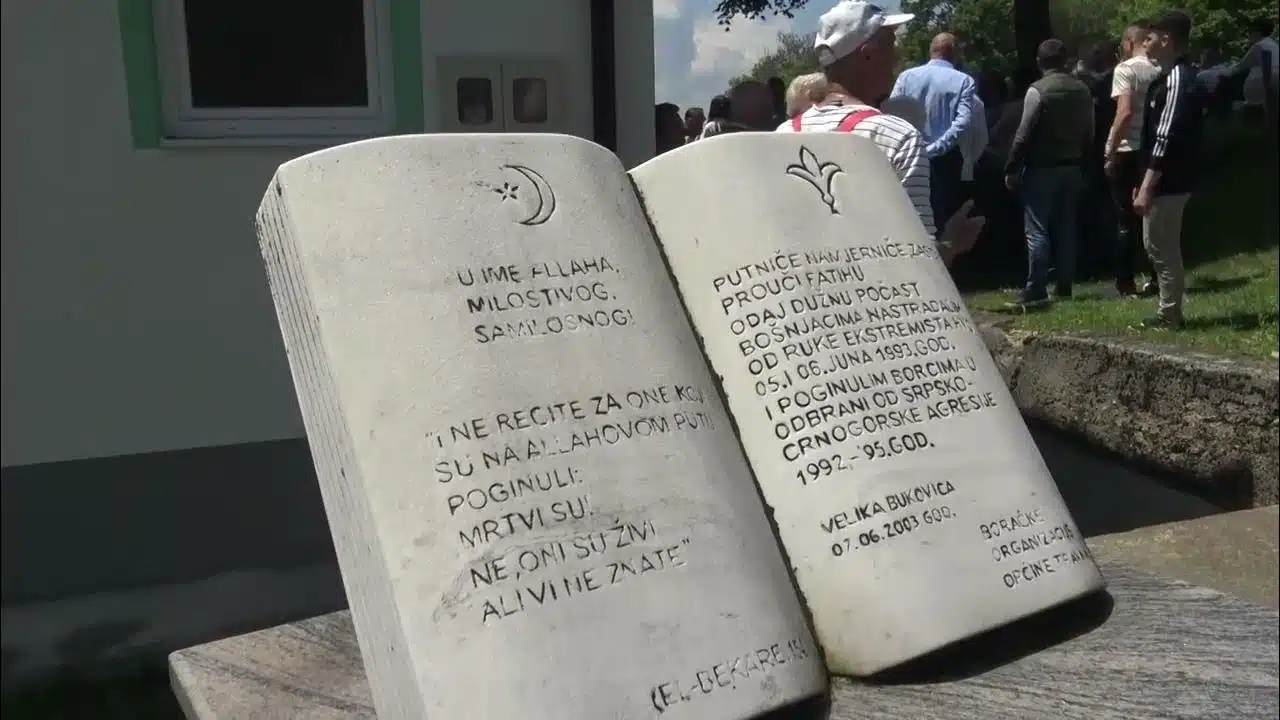 U IME ALLAHA,
MILOSTIVOG,
SAMILOSNOG!
"I NE RECITE ZA ONE KOJI
SU NA ALLAHOVOM PUTU
POGINULI:
MRTVI SU!
NE, ONI SU ŽIVI
ALI VI NE ZNATE"
(EL-BEKARE, 154
PUTNIČE NAMJERNIČE
PROUČI FATIHU
ODAJ DUŽNU POČAST
BOŠNJACIMA
OD RUKE EKSTREMISTA
05. I 06. JUNA 1993. GOD.
I POGINULIM BORCIMA U
ODBRANI OD SRPSKO-
CRNOGORSKE AGRESIJE
1992.-'95.GOD.
VELIKA BUKOVICA
07.06.2003 GOD.
BORAČKE
ORGANIZACIJE
OPĆINE